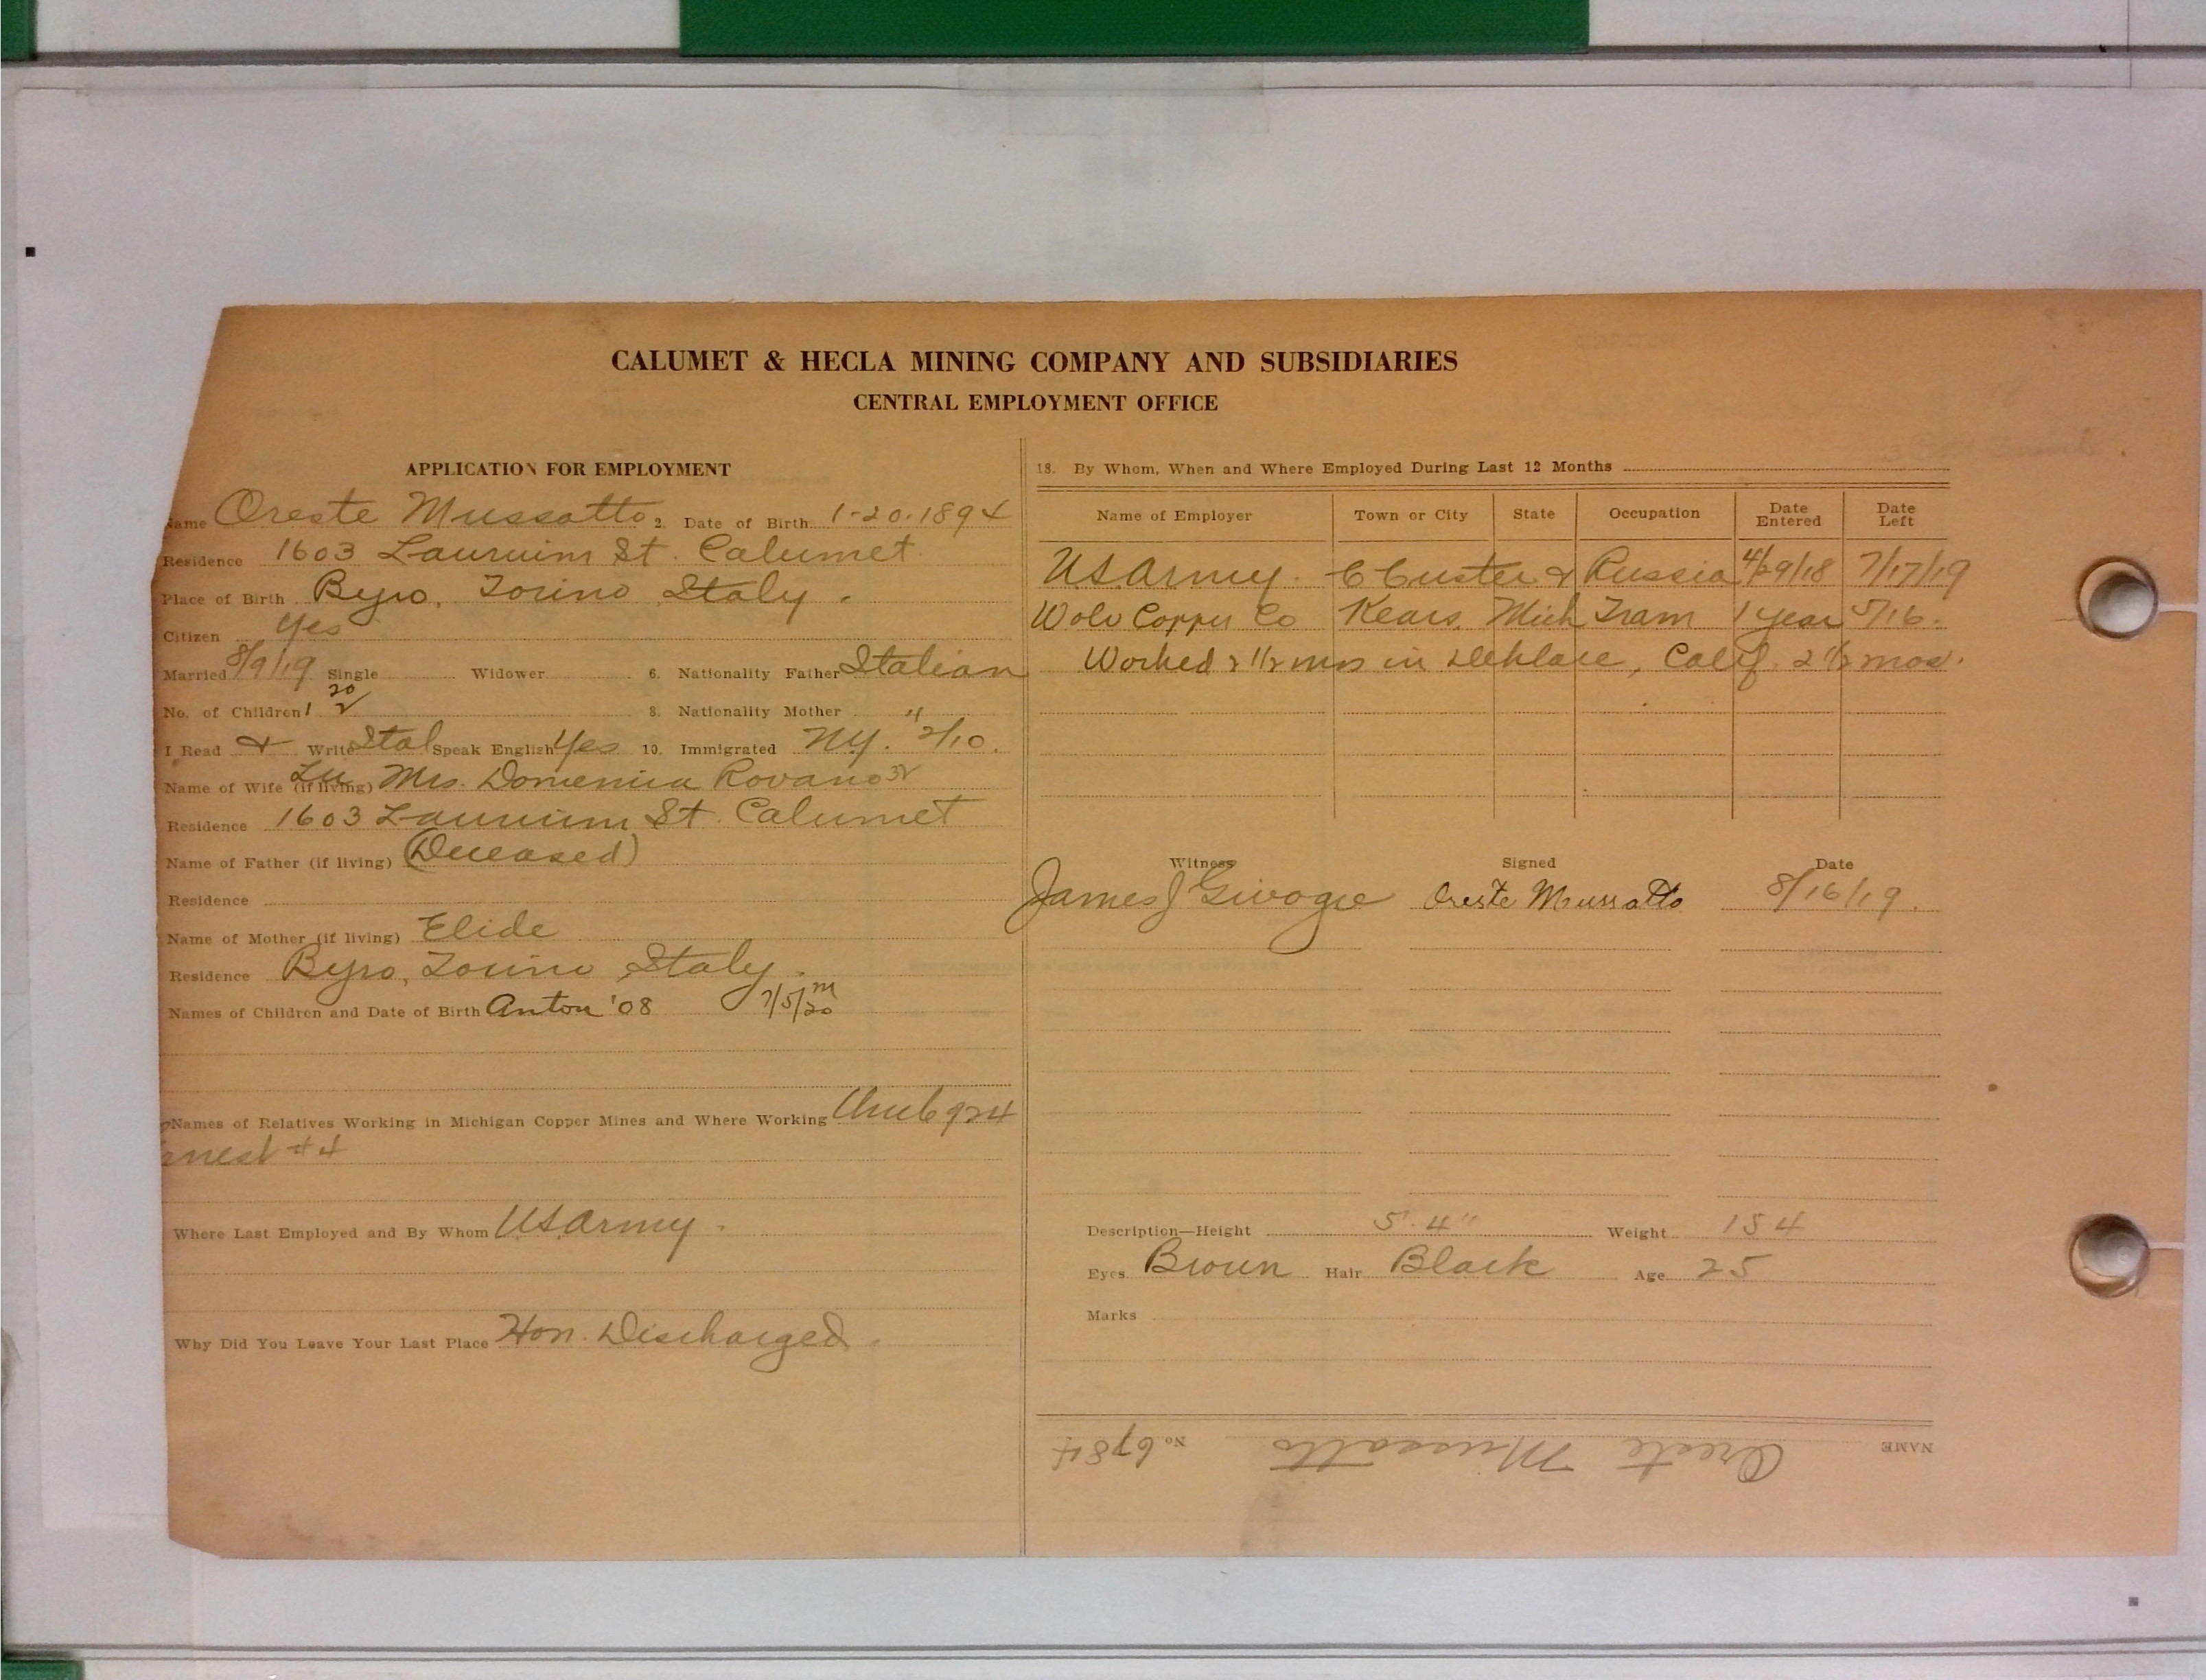 CALUMET & HECLA MINING COMPANY AND SUBSIDIARIES
CENTRAL EMPLOYMENT OFFICE
APPLICATION FOR EMPLOYMENT
ame Oreste Mussatto 2. Date of Birth 1-20-1894
Residence 1603 Laurium St. Calumet
Place of Birth Byro, Torino Italy.
Citizen Yes
Married 8/9/19 Single Widower 6. Nationality Father Italian
No. of Children 1 20/2 8. Nationality Mother "
I Read & Write Ital Speak English Yes 10. Immigrated N.Y. 2/10.
Name of Wife (if living) Mrs. Domenica Rovano
Residence 1603 Laurium St. Calumet
Name of Father (if living) (Deceased)
Residence
Name of Mother (if living) Elide
Residence Byro, Torino Italy.
Names of Children and Date of Birth Anton '08 7/5/20 m
Names of Relatives Working in Michigan Copper Mines and Where Working 924
rnest #4
Where Last Employed and By Whom U.S. Army.
Why Did You Leave Your Last Place Hon. Discharged.
18. By Whom, When and Where Employed During Last 12 Months
Name of Employer Town or City State Occupation Date Entered Date Left
U.S. Army. C Custer & Russia 4/29/18 7/17/19
Wolv Copper Co Kears. Mich Tram 1 year 5/16.
Worked 2 1/2 mos in , Calif. 2 1/2 mos.
Witness Signed Date
James J Givogre Oreste Mussatto 8/16/19.
Description—Height 5' 4" Weight 154
Eyes Brown Hair Black Age 25
Marks
NAME Oreste Mussatto No. 6784